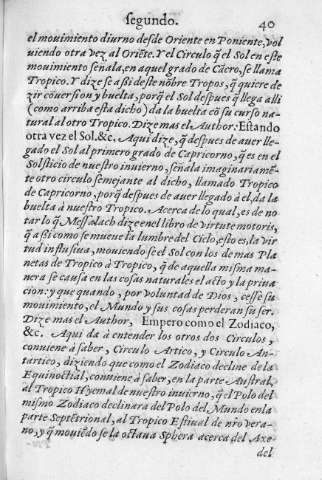 segundo. 40
el mouimiento diurno desde Oriente en Poniente, vol
uiendo otra vez al Oriẽte. Y el Circulo q̃ el Sol en este
mouimiento señala, en aquel grado de Cãcro, se llama
Tropico. Y dize se a ſsi deste nõbre Tropos, q̃ quiere de
zir cõuersion y buelta, porq̃ el Sol despues q̃ llega alli
(como arriba esta dicho) da la buelta cõ su curso na
tural al otro Tropico. Dize mas el Author: Estando
otra vez el Sol. &c. Aqui dize, q̃ despues de auer lle-
gado el Sol al primero grado de Capricorno, q̃ es en el
Solsticio de nuestro inuierno, señala imaginariamẽ-
te otro circulo semejante al dicho, llamado Tropico
de Capricorno, porq̃ despues de auer llegado à el, da la
buelta à nuestro Tropico. Acerca de lo qual, es de no
tar lo q̃ Messalach dize en el libro de virtute motoris,
q̃ a ſsi como se mueue la lumbre del Cielo, esto es, la vir
tud influsiua, mouiendo se el Sol con los de mas Pla
netas de Tropico à Tropico, q̃ de aquella misma ma-
nera se causa en las cosas naturales el acto y la priua
cion: y que quando, por voluntad de Dios, cesse su
mouimiento, el Mundo y sus cosas perderan su ser.
Dize mas el Author, Empero como el Zodiaco,
&c. Aqui da à entender los otros dos Circulos,
conuiene à saber, Circulo Artico, y Circulo An-
tartico, diziendo que como el Zodiaco decline de la
Equinoctial, conuiene à saber, en la parte Austral,
al Tropico Hyemal de nuestro inuierno, q̃ el Polo del
mismo Zodiaco declinara del Polo del Mundo en la
parte Septẽtrional, al Tropico Estiual de nr̃o vera-
no, y q̃ mouiẽdo se la octaua Sphera acerca del Axe
del